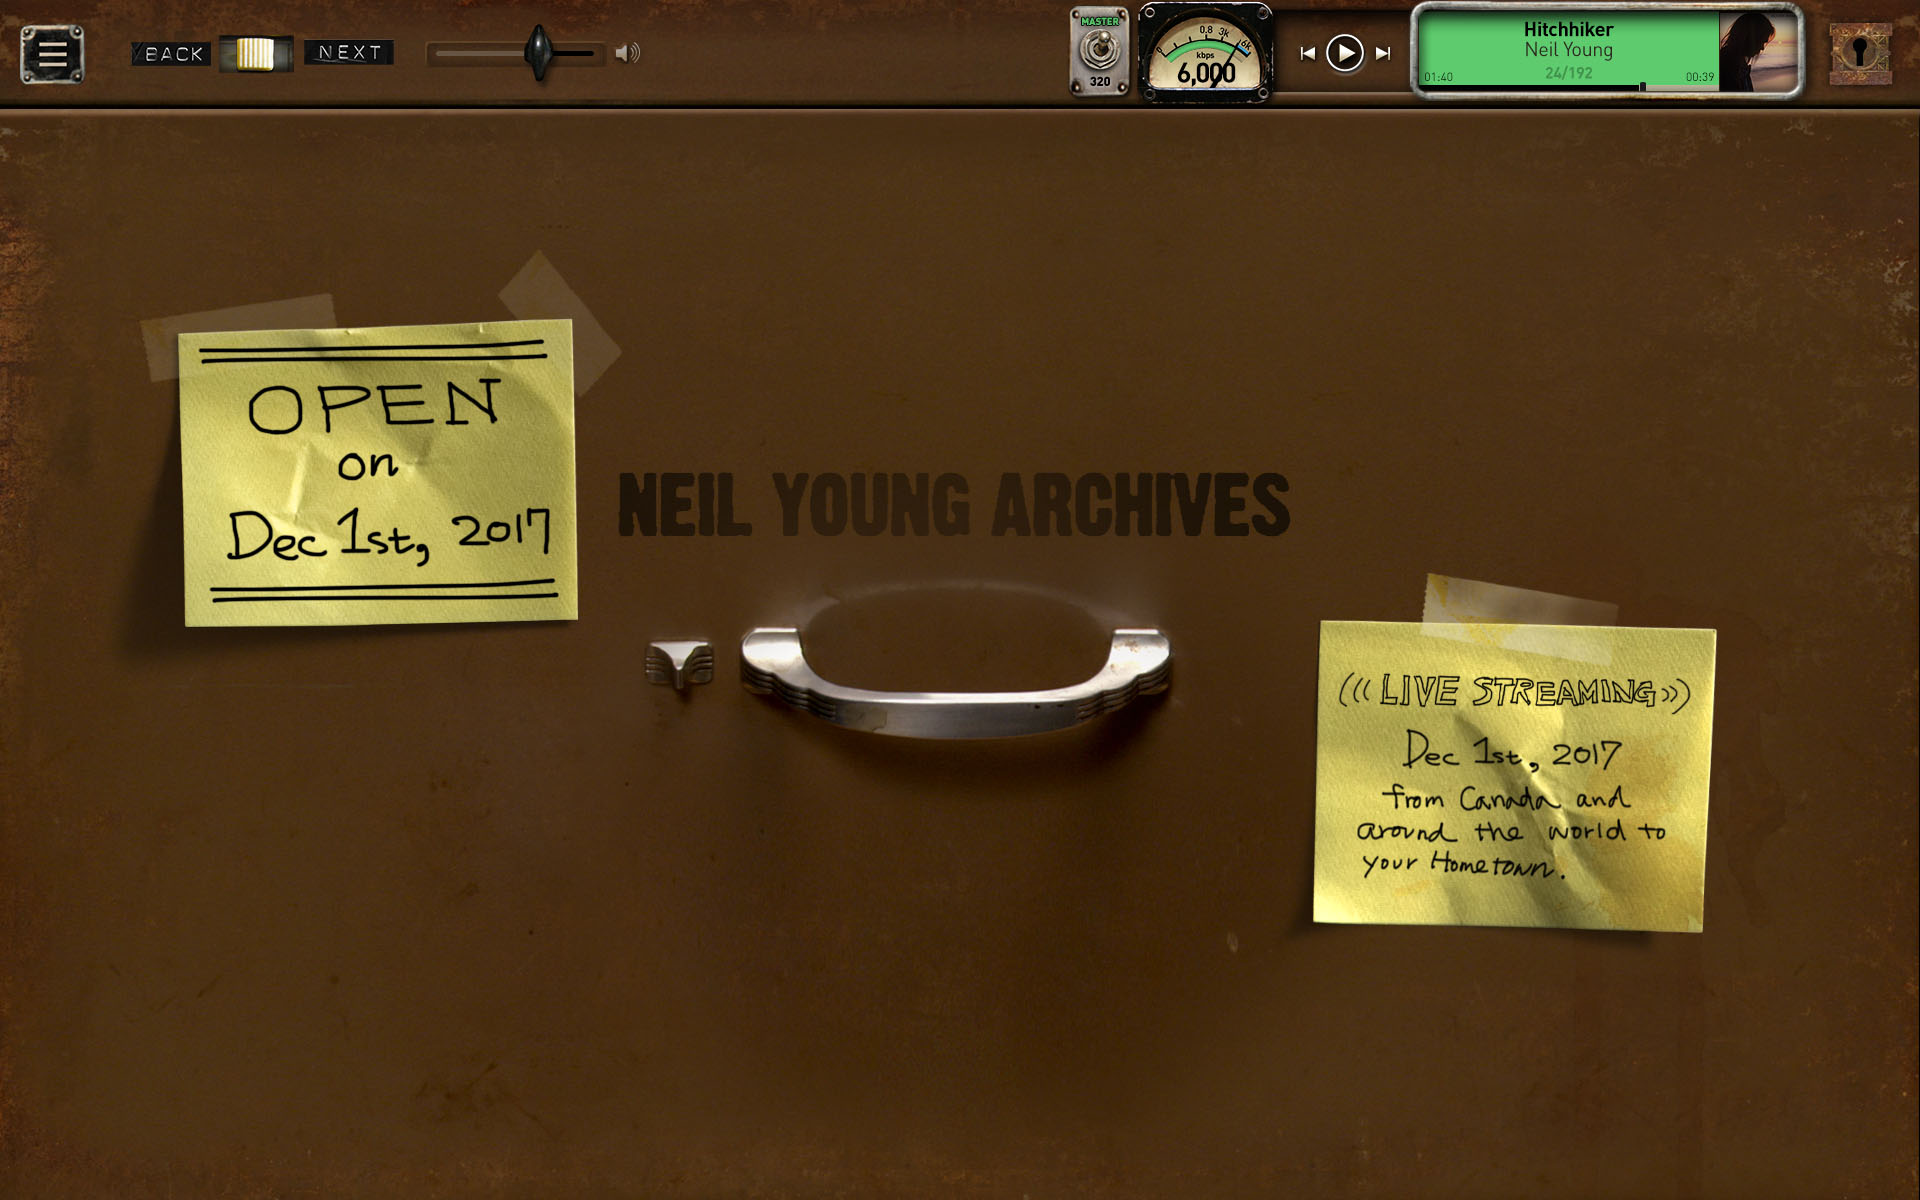 BACK
NEXT
MASTER
320
0 0.8 3k 6k
kbps
6,000
Hitchhiker
Neil Young
24/192
01:40
00:39
OPEN
on
Dec 1st, 2017
NEIL YOUNG ARCHIVES
((( LIVE STREAMING ))
Dec 1st, 2017
from Canada and
around the world to
your Hometown.